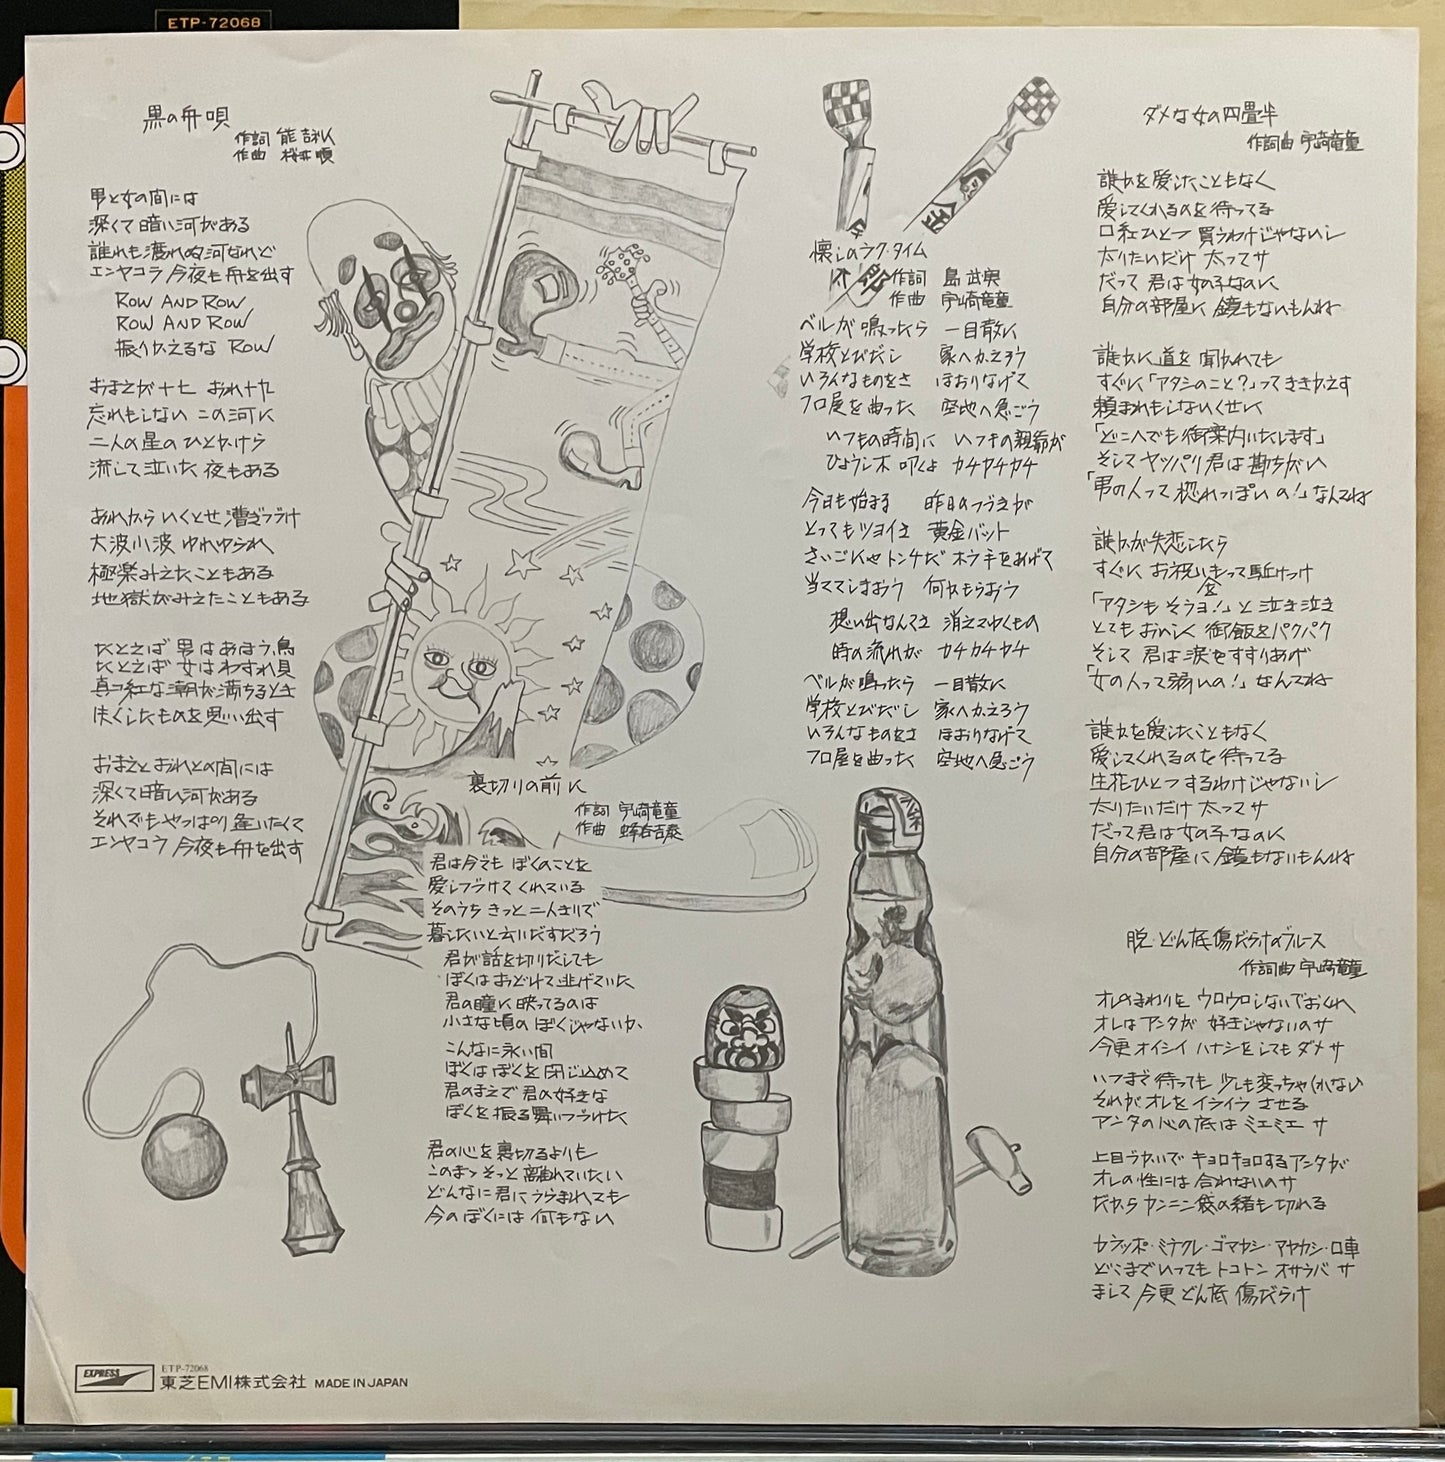 ETP-72068
黒の舟唄
作詞 能吉利人
作曲 桜井順
男と女の間には
深くて暗い河がある
誰れも渡れぬ河なれど
エンヤコラ 今夜も舟を出す
ROW AND ROW
ROW AND ROW
振りかえるな ROW
おまえが十七 おれ十九
忘れもしない この河に
二人の星の ひとかけら
流して泣いた 夜もある
あれから いくとせ 漕ぎつづけ
大波小波 ゆれゆられ
極楽みえたこともある
地獄がみえたこともある
たとえば 男は あほう鳥
たとえば 女は わすれ貝
真ッ紅な 潮が 満ちるとき
失くしたものを 思い出す
おまえと おれとの間には
深くて暗い河がある
それでもやっぱり 逢いたくて
エンヤコラ 今夜も舟を出す
裏切りの前に
作詞 宇崎竜童
作曲 蜂谷吉泰
君は今でも ぼくのことを
愛しつづけて くれている
そのうち きっと 二人きりで
暮したいと云いだすだろう
君が話を切りだしても
ぼくは おどけて 逃げていた
君の瞳に 映ってるのは
小さな頃の ぼくじゃないか、
こんなに永い間
ぼくは ぼくを 閉じ込めて
君のまえで 君の好きな
ぼくを 振る舞いつづけた
君の心を 裏切るよりも
このまゝ そっと 離れていたい
どんなに 君に うらまれても
今のぼくには 何もない
懐しのラグ・タイム
作詞 島武実
作曲 宇崎竜童
ベルが鳴ったら 一目散に
学校とびだし 家へかえろう
いろんなものをさ ほおりなげて
フロ屋を曲った 空地へ急ごう
いつもの時間に いつもの親爺が
ひょうし木 叩くよ カチカチカチ
今日も始まる 昨日のつづきが
とってもツヨイさ 黄金バット
さいごにゃ トンチだ ホラ 手をあげて
当ててしまおう 何かもらおう
想い出なんてさ 消えてゆくもの
時の流れが カチカチカチ
ベルが鳴ったら 一目散に
学校とびだし 家へかえろう
いろんなものをさ ほおりなげて
フロ屋を曲った 空地へ急ごう
ダメな女の四畳半
作詞曲 宇崎竜童
誰かを愛したこともなく
愛してくれるのを待ってる
口紅ひとつ 買うわけじゃないし
太りたいだけ 太ってサ
だって 君は女の子なのに
自分の部屋に 鏡もないもんね
誰かに道を 聞かれても
すぐに「アタシのこと?」って ききかえす
頼まれもしないくせに
「どこへでも御案内いたします」
そして ヤッパリ 君は 勘ちがい
「男の人って 惚れっぽいの!」なんてね
誰かが失恋したら
すぐに お祝い金もって 駈けつけ
「アタシも そうヨ!」と 泣き泣き
とても おいしく 御飯をパクパク
そして 君は 涙をすすりあげ
「女の人って弱いの!」なんてね
誰かを愛したこともなく
愛してくれるのを待ってる
生花ひとつ するわけじゃないし
太りたいだけ 太ってサ
だって君は女の子なのに
自分の部屋に 鏡もないもんね
脱・どん底傷だらけのブルース
作詞曲 宇崎竜童
オレのまわりを ウロウロしないでおくれ
オレは アンタが 好きじゃないのサ
今更 オイシイ ハナシをしてもダメサ
いつまで待っても 少しも変っちゃいない
それが オレを イライラ させる
アンタの心の底は ミエミエ サ
上目づかいで キョロキョロする アンタが
オレの性には 合わないのサ
だから カンニン袋の緒も 切れる
カラッポ・ミナクレ・ゴマカシ・アヤカシ・口車
どこまでいっても トコトン オサラバ サ
まして 今更 どん底 傷だらけ
EXPRESS
ETP-72068
東芝EMI株式会社 MADE IN JAPAN